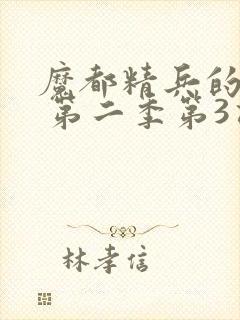 魔都精兵的
第二季第3
林孝信